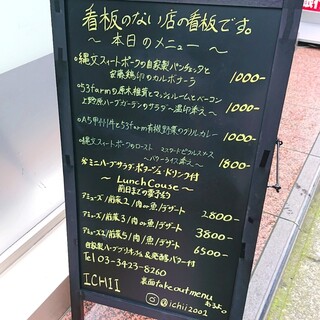 看板のない店の看板です。
〜本日のメニュー〜
縄文フィートポークの自家製パンチェッタと
卵のカルボナーラ 1000-
53farmの原木椎茸とマッシュルームとベーコン
上野原ハーブガーデンのサラダ〜温卵添え〜 1000-
A5甲州牛と53farm有機野菜のグリルカレー 1000-
縄文フィートポークのロースト マスタードピクルスソース
〜バターライス添え〜 1800-
※ミニハーブサラダ・ポタージュ・ドリンク付
〜Lunch Couse〜
前日まで要予約
アミューズ/前菜2/肉or魚/デザート 2800-
アミューズ/前菜3/肉or魚/デザート 3800-
アミューズ2/前菜5/肉/魚/デザート 6500-
自家製ハーブフォカッチャ&発酵バター付
Tel 03-3423-8260
裏面takeoutmenu
あるよ。
ICHII
@ichii2001